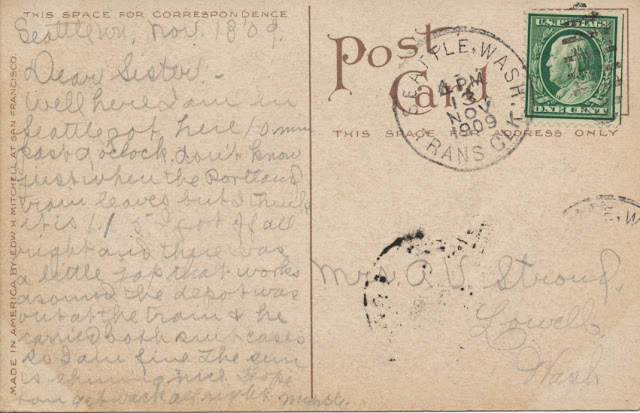 THIS SPACE FOR CORRESPONDENCE
Seattle Wn, Nov. 13 09.
Dear Sister -
Well here I am in
Seattle got here 10 min
past 9 oclock, don't know
just when the Portland
train leaves but I think
it is 11 I got off all
right and there was
a little Jap that works
around the depot was
out at the train & he
carried both suitcases
so I am fine The sun
is shining nice Hope
you got back all right
MADE IN AMERICA BY EDW. H. MITCHELL AT SAN FRANCISCO.
Post
Card
THIS SPACE FOR ADDRESS ONLY
SEATTLE, WASH.
4 PM
13
NOV
1909
TRANS. CLK.
U.S. POSTAGE
ONE CENT
Mrs. A. V. Stroud.
Lowell
Wash